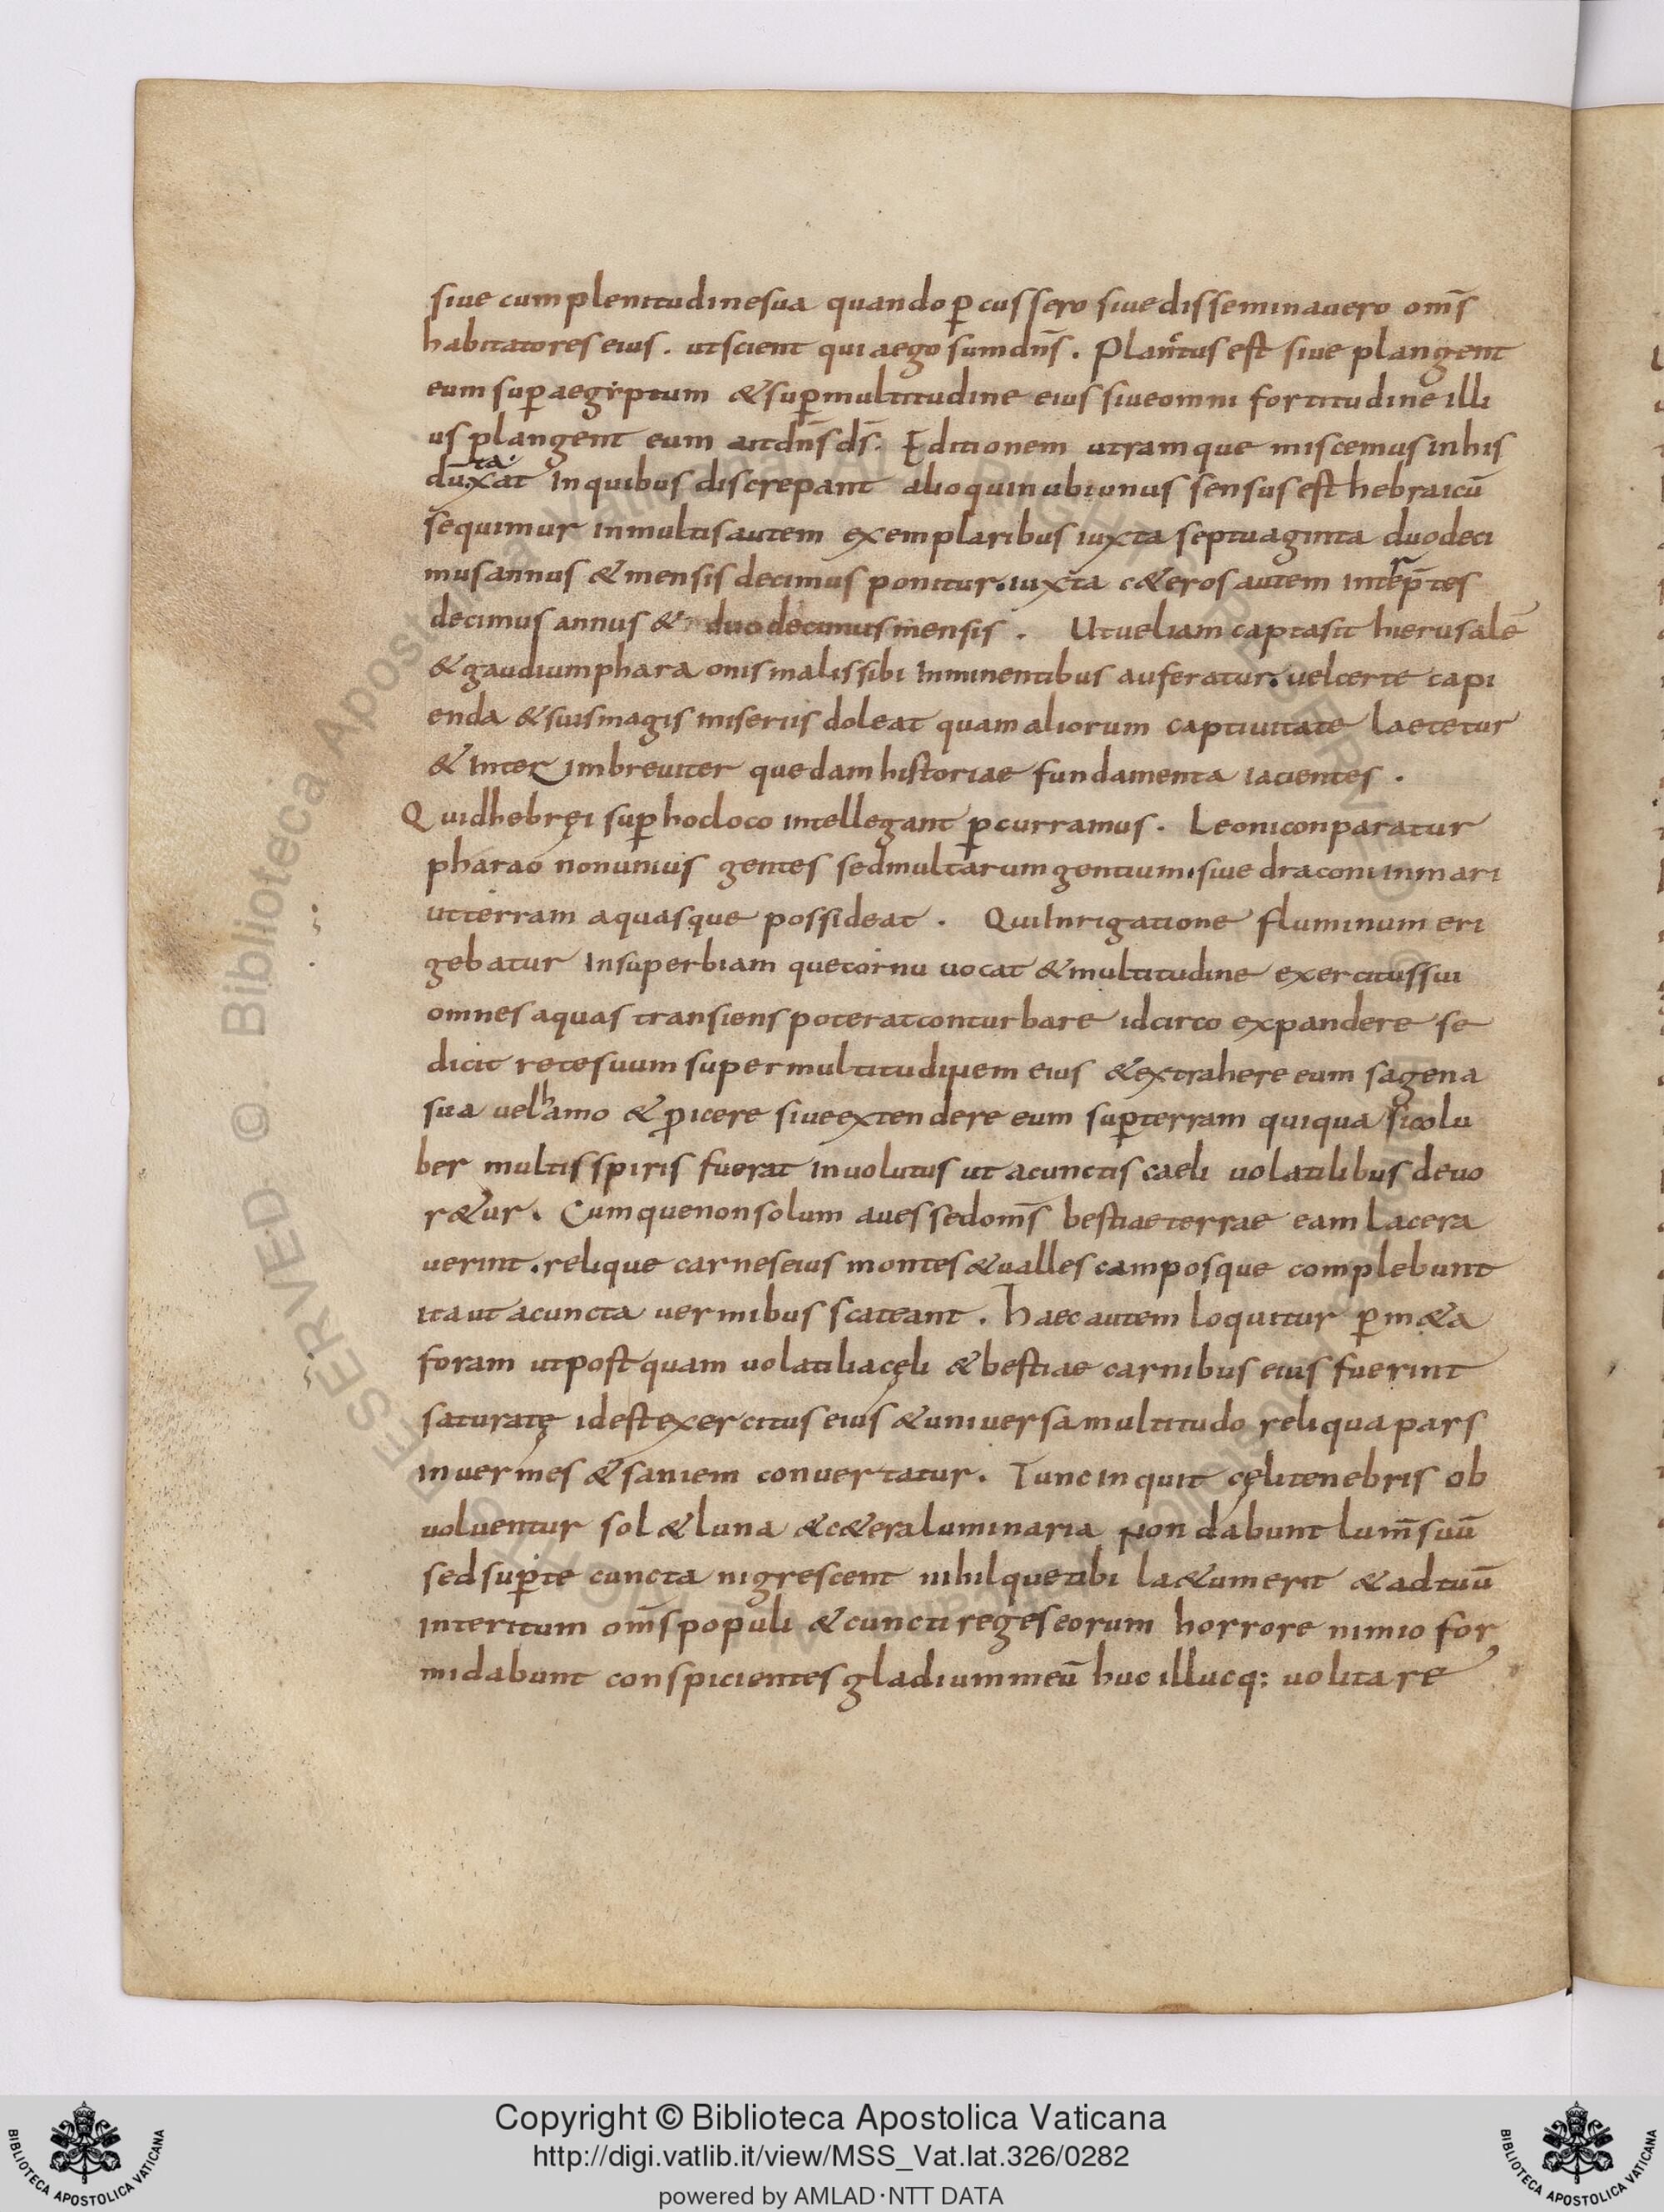 siue cum plenitudine sua quando p̱cussero siue disseminauero om̄s
habitatores eius. ut scient quia ego sum dn̄s. Planctus est siue plangent
eum sup̱ aegyptum & sup̱ multitudine eius siue omni fortitudine illi
us plangent eum ait dn̄s ds̄. Editionem utramque miscemus in his
dūtaxat in quibus discrepant alioquin ubi unus sensus est hebraicū
sequimur in multis autem exemplaribus iuxta septuaginta duodeci
mus annus & mensis decimus ponitur. iuxta c&eros autem interp̱tes
decimus annus & duodecimus mensis. Ut uel iam capta sit hierusalē
& gaudium pharaonis malis sibi inminentibus auferatur. uel certe capi
enda & suis magis miseriis doleat quam aliorum captiuitate laetetur
& interim breuiter quedam historiae fundamenta iacientes.
Quid hebręi sup̱ hoc loco intellegant p̱curramus. Leoni conparatur
pharao non unius gentes sed multarum gentium. siue draconi in mari
ut terram aquasque possideat. Qui inrigatione fluminum eri
gebatur in superbiam que cornu uocat & multitudine exercitus sui
omnes aquas transiens poterat conturbare idcirco expandere se
dicit rete suum super multitudinem eius & extrahere eum sagena
sua uel hamo & p̱icere siue extendere eum sup̱ terram qui quasi colu
ber multis spiris fuerat inuolutus ut a cunctis caeli uolatilibus deuo
r&ur. Cumque non solum aues sed om̄s bestiae terrae eam lacera
uerint. relique carnes eius montes & ualles camposque complebunt
ita ut a cuncta uermibus scateant. Haec autem loquitur p̱ m&a
foram ut postquam uolatilia cęli & bestiae carnibus eius fuerint
saturatę id est exercitus eius & uniuersa multitudo reliqua pars
in uermes & saniem conuertatur. Tunc inquit cęli tenebris ob
uoluentur sol & luna & c&era luminaria non dabunt lum̄ suū
sed sup̱ te cuncta nigrescent nihilque tibi la&um erit & ad tuū
interitum om̄s populi & cuncti reges eorum horrore nimio for
midabunt conspicientes gladium meū huc illucq; uolitare
Copyright © Biblioteca Apostolica Vaticana
http://digi.vatlib.it/view/MSS_Vat.lat.326/0282
powered by AMLAD·NTT DATA